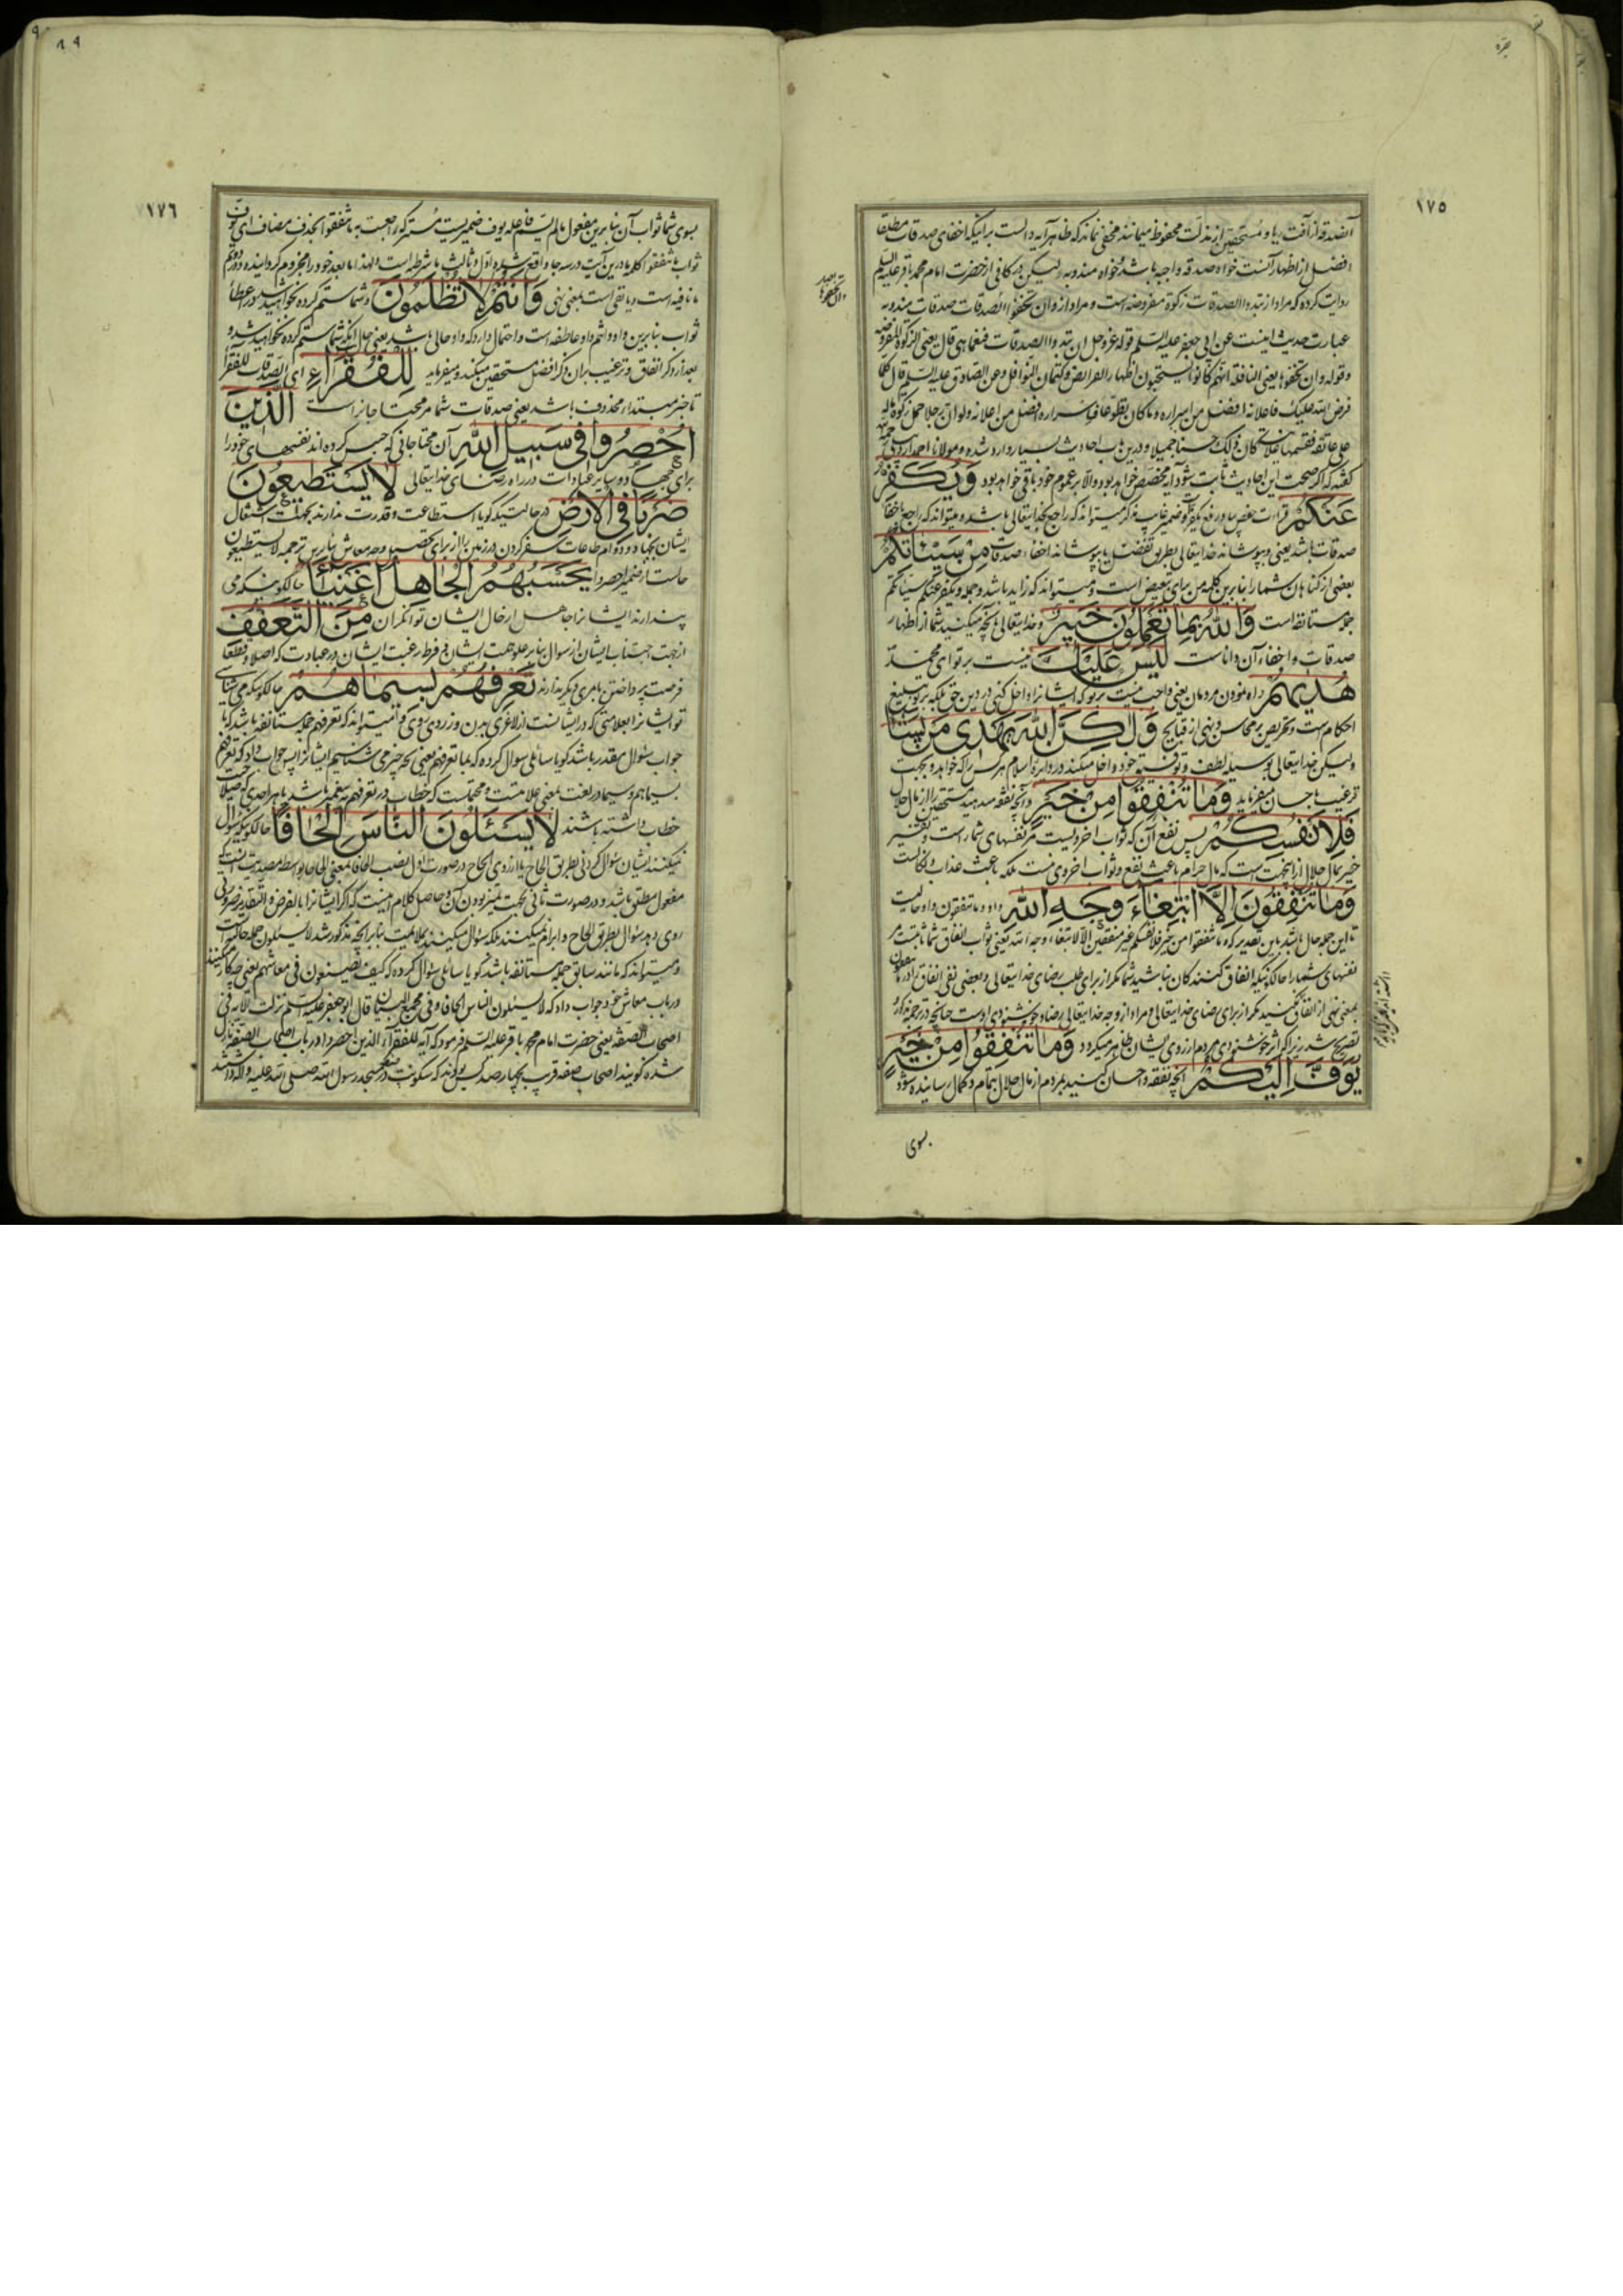 بقره
١٧٥
آنصدقه از آفت ریا و مستحقین از مذلت محفوظ میمانند مخفی نماند که ظاهر آیه دالست بر اینکه اخفای صدقات مطلقا
افضل از اظهار آنست خواه صدقه واجبه باشد و خواه مندوبه لیکن در کافی از حضرت امام محمد باقر علیه السلم
روایت کرده که مراد از تبدوا الصدقات زکوة مفروضه است و مراد از و ان تخفوا الصدقات صدقات مندوبه
عبارت حدیث اینست عن ابی جعفر علیه السلم قوله عز و جل ان تبدوا الصدقات فنعما هی قال یعنی الزکوة المفروضه
و قوله و ان تخفوها یعنی النافلة انهم کانوا یستحبون اظهار الفرایض و کتمان النوافل و عن الصادق علیه السلم قال کلما
فرض الله علیک فاعلانه افضل من اسراره و ما کان تطوعا فاسراره افضل من اعلانه ولو ان رجلا حمل زکوة ماله
علی عاتقه فقسمها علانیة کان ذلک حسنا جمیلا و درین باب احادیث بسیار وارد شده و مولانا احمد اردبیلی
گفته که اگر صحت این احادیث ثابت شود آیه مخصص خواهد بود والا بر عموم خود باقی خواهد بود وَيُكَفِّرُ
عَنكُمْ قراءت حفص بیا و رفع یکفر و ضمیر غایب مذکر میتواند که راجع بخدایتعالی باشد و میتواند که راجع باخفا
صدقات باشد یعنی و بپوشاند خدایتعالی بطریق تفضل یا بپوشاند اخفاء صدقات مِن سَيِّئَاتِكُمْ
بعضی از گناهان شما را بنابرین کلمه من برای تبعیض است و میتواند که زاید باشد و جمله و یکفر عنکم سیئاتکم
جمله مستانفه است وَاللهُ بِمَا تَعْمَلُونَ خَبِيرٌ و خدایتعالی بآنچه میکنید شما از اظهار
صدقات و اخفاء آن داناست لَيْسَ عَلَيْكَ نیست بر تو ای محمد
هُدَيهُمْ راه نمودن مردمان یعنی واجب نیست بر تو که ایشانرا داخل کنی در دین حق بلکه بر تو تبلیغ
احکام است و تحریص بر محاسن و نهی از قبایح وَلٰكِنَّ اللهَ يَهْدِى مَن يَشَاءُ
ولیکن خدایتعالی بوسیله لطف و توفیق خود داخل میکند در دایره اسلام هر کس را که خواهد و بجهت
ترغیب باحسان میفرماید وَمَا تُنفِقُوا مِنْ خَيْرٍ و آنچه نفقه میدهید مستحقین را از مال حلال
فَلِاَنفُسِكُمْ پس نفع آن که ثواب اخرویست مر نفسهای شما راست و تفسیر
خیر بمال حلال از انجهت است که مال حرام باعث نفع و ثواب اخروی نیست بلکه باعث عذاب و نکالست
وَمَا تُنفِقُونَ اِلَّا ابْتِغَاءَ وَجْهِ اللهِ واو و ما تنفقون واو حالیت
تا این جمله حال باشد باین تقدیر که و ما تنفقوا من خیر فلانفسکم غیر منفقین الا لابتغاء وجه الله یعنی ثواب انفاق شما ثابتست مر
نفسهای شما را حالکونیکه انفاق کنندگان نباشید شما مگر از برای طلب رضای خدایتعالی و بعضی نفی انفاق را درین
بمعنی نهی از انفاق کنید مگر از برای رضای خدایتعالی و مراد از وجه خدایتعالی رضا و خوشنودی اوست چنانچه در ترجمه مذکور
تصریح شد زیرا که اثر خوشنودی مردم از روی ایشان ظاهر میگردد وَمَا تُنفِقُوا مِنْ خَيْرٍ
يُوَفَّ اِلَيْكُمْ آنچه نفقه و احسان کنید بمردم از مال حلال بتمام و کمال رسانیده شود
بسوی
٨٩
١٧٦
بسوی شما ثواب آن بنابرین مفعول مالم یسم فاعله یوف ضمیریست مستتر که راجعست به ما تنفقوا بحذف مضاف ای یوف
ثواب ما تنفقوا کلمه ما درین آیت در سه جا واقع شده اول و ثالث ما شرطیه است و لهذا ما بعد خود را مجزوم گردانیده و دویم
ما نافیه است و ما نفی است بمعنی نهی وَاَنتُمْ لَا تُظْلَمُونَ و شما ستم کرده نخواهید شد در عطای
ثواب بنابرین واو و انتم واو عاطفه است و احتمال دارد که واو حالی باشد یعنی حال آنکه شما ستم کرده نخواهید شد و
بعد از ذکر انفاق و ترغیب بران ذکر افضل مستحقین میکند و میفرماید لِلْفُقَرَاءِ ای الصدقات للفقراء
تا خبر مبتداء محذوف باشد یعنی صدقات شما مر محتاجانراست الَّذِينَ
اُحْصِرُوا فِى سَبِيلِ اللهِ آن محتاجانی که حبس کرده اند نفسهای خود را
برای جهاد و سایر عبادات در راه رضای خدایتعالی لَا يَسْتَطِيعُونَ
ضَرْبًا فِى الْاَرْضِ در حالتیکه گویا استطاعت و قدرت ندارند بجهت اشتغال
ایشان بجهاد و دوام طاعات سفر کردن در زمین را از برای تحصیل وجه معاش بنابرین ترجمه لا یستطیعون
حالست از ضمیر احصروا يَحْسَبُهُمُ الْجَاهِلُ اَغْنِيَاءَ حالکونیکه می
پندارند ایشانرا جاهل از حال ایشان توانگران مِنَ التَّعَفُّفِ
از جهت اجتناب ایشان از سوال بنابر علو همت ایشان و فرط رغبت ایشان در عبادت که اصلا و قطعا
فرصت پرداختن بامری دیگر ندارند تَعْرِفُهُمْ بِسِيمَاهُمْ حالکونیکه می شناسی
تو ایشانرا بعلامتی که در ایشانست از لاغری بدن و زردی روی و میتواند که تعرفهم جمله مستانفه باشد که با
جواب سؤال مقدر باشد گویا سائلی سوال کرده که بما تعرفهم یعنی بچه چیز می شناسیم ایشانرا پس جواب داد که تعرفهم
بسیماهم و سیما در لغت بمعنی علامتست و محتملست که خطاب در تعرفهم به پیغمبر باشد یا بهر احدی که صلاحیت
خطاب داشته باشند لَا يَسْئَلُونَ النَّاسَ اِلْحَافًا حالکونیکه سؤال
نمیکنند ایشان سؤال کردنی بطریق الحاح یا از روی الحاح در صورت اول نصب الحافا بمعنی الحاحا بواسطه مصدریت است که
مفعول مطلق باشد و در صورت ثانی بجهت تمیز بودن آن و حاصل کلام اینست که اگر ایشانرا بالفرض و التقدیر ضرورتی
روی دهد سؤال بطریق الحاح و ابرام نمیکنند بلکه سؤال میکنند بملایمت بنابر آنچه مذکور شد لا یسئلون جمله حالیه است
و میتواند که مانند سابق جمله مستانفه باشد گویا سائلی سؤال کرده که کیف یصنعون فی معاشهم یعنی چکار میکنند
در باب معاش خود جواب داد که لا یسئلون الناس الحافا و فی مجمع البیان قال ابو جعفر علیه السلم نزلت الآیه فی
اصحاب الصفه یعنی حضرت امام محمد باقر علیه السلم فرمود که آیه للفقراء الذین احصروا در باب اصحاب الصفه نازل
شده گویند اصحاب صفه قریب بچهار صد کس بودند که سکونت در صفه مسجد رسول الله صلی الله علیه و آله داشتند